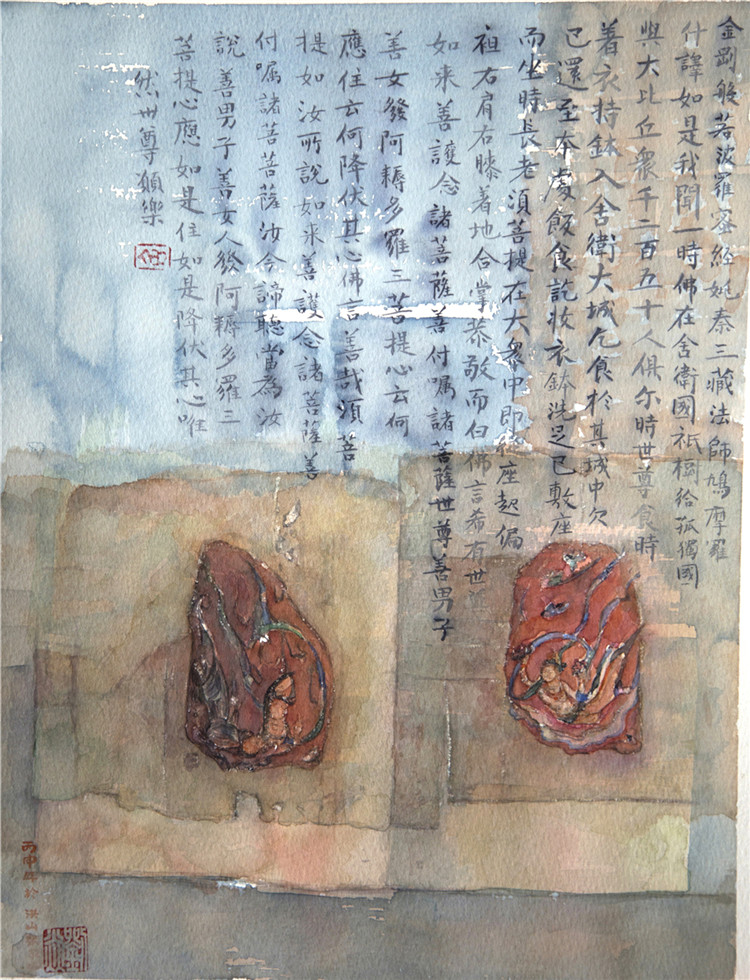 金剛般若波羅蜜經姚秦三藏法師鳩摩羅
什譯如是我聞一時佛在舍衛國祇樹給孤獨國
與大比丘眾千二百五十人俱尔時世尊食時
着衣持鉢入舍衛大城乞食於其城中欠
已還至本處飯食訖收衣鉢洗足已敷座
而坐時長老須菩提在大眾中即從座起偏
袒右肩右膝着地合掌恭敬而白佛言希有世尊
如来善護念諸菩薩善付嘱諸菩薩世尊善男子
善女發阿耨多羅三菩提心云何
應住云何降伏其心佛言善哉須菩
提如汝所說如来善護念諸菩薩善
付嘱諸菩菩薩汝今諦聽當為汝
說善男子善女人發阿耨多羅三
菩提心應如是住如是降伏其心唯
然世尊願樂
丙申年於